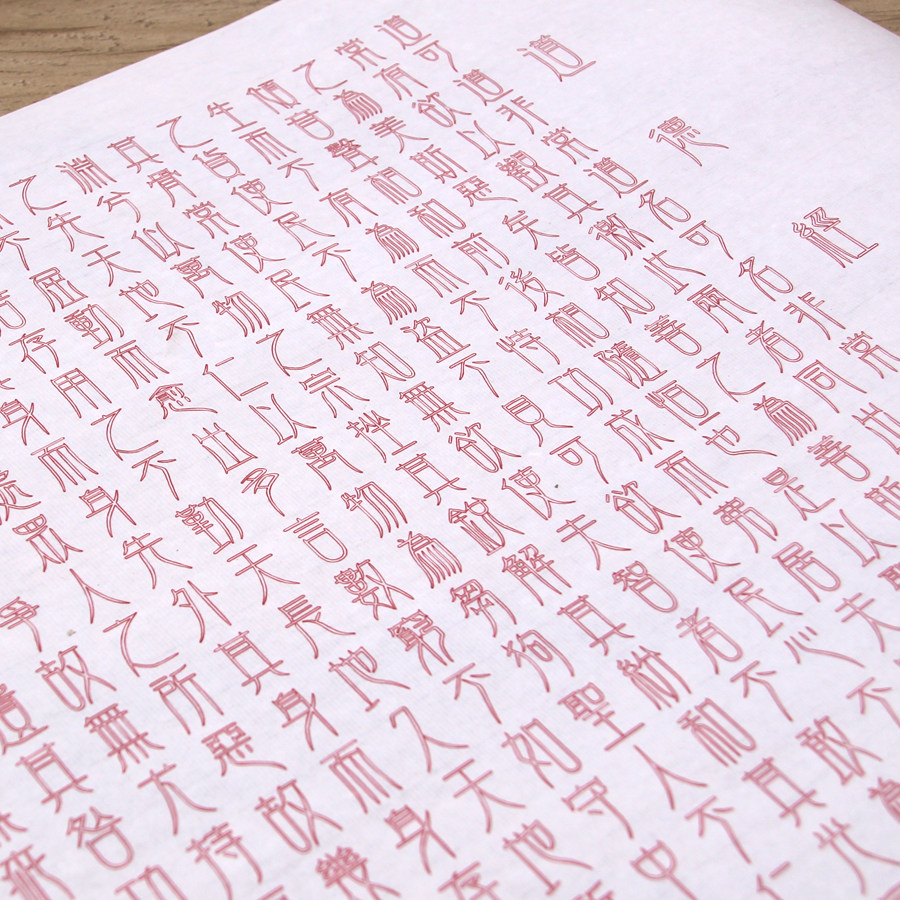 道德經
道可道非常道名可名非常
常有欲以觀其徼此兩者同出
之為美斯惡矣皆知善之為善斯
傾音聲相和前後相隨恒也是以聖
生而不有為而不恃功成而弗居夫
之貨使民不為盜不見可欲使民心不
其骨常使民無知無欲使夫智者不敢為
淵兮似萬物之宗挫其銳解其紛和其光
之先天地不仁以萬物為芻狗聖人不仁
不屈動而愈出多言數窮不如守中
若存用之不勤天長地久天地所
身而身先外其身而身存
處眾人之所惡故幾
爭故無尤持
遺其咎功